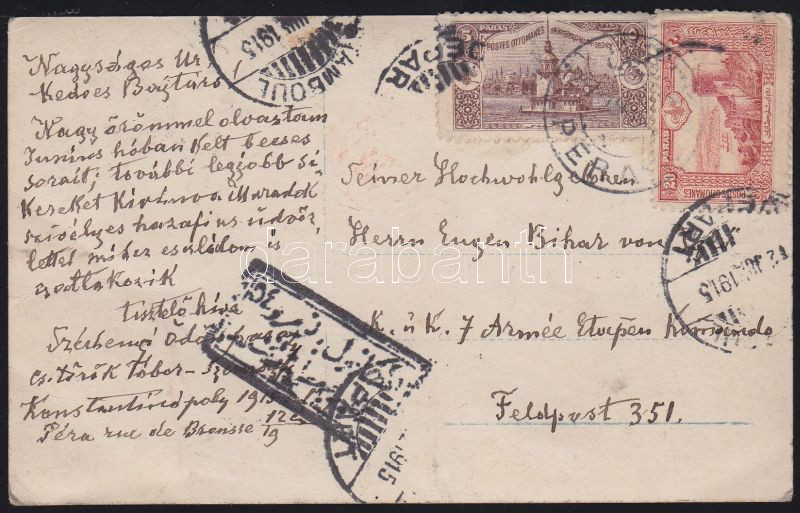 Nagyságos Ur
Kedves Bajtárs!
Nagy örömmel olvastam
Junius hóban kelt becses
sorait, további legjobb si-
kereket kivánva. Maradok
szivélyes hazafias üdvöz-
lettel mihez családom is
csatlakozik
tisztelő hive
Széchenyi Ödön pasa
cs. török tábor-
Konstantinápoly 1915
Péra rue de Brousse 19
Seiner Hochwohlgeboren
Herrn Eugen Bihar von
K. u K. 7 Armée Etapen Komando
Feldpost 351.
5 PARAS 5
POSTES OTTOMANES
20 PARAS
POSTES OTTOMANES
STAMBOUL
DEPART
PERA
DEPART
12 JUIL 1915
darabanth